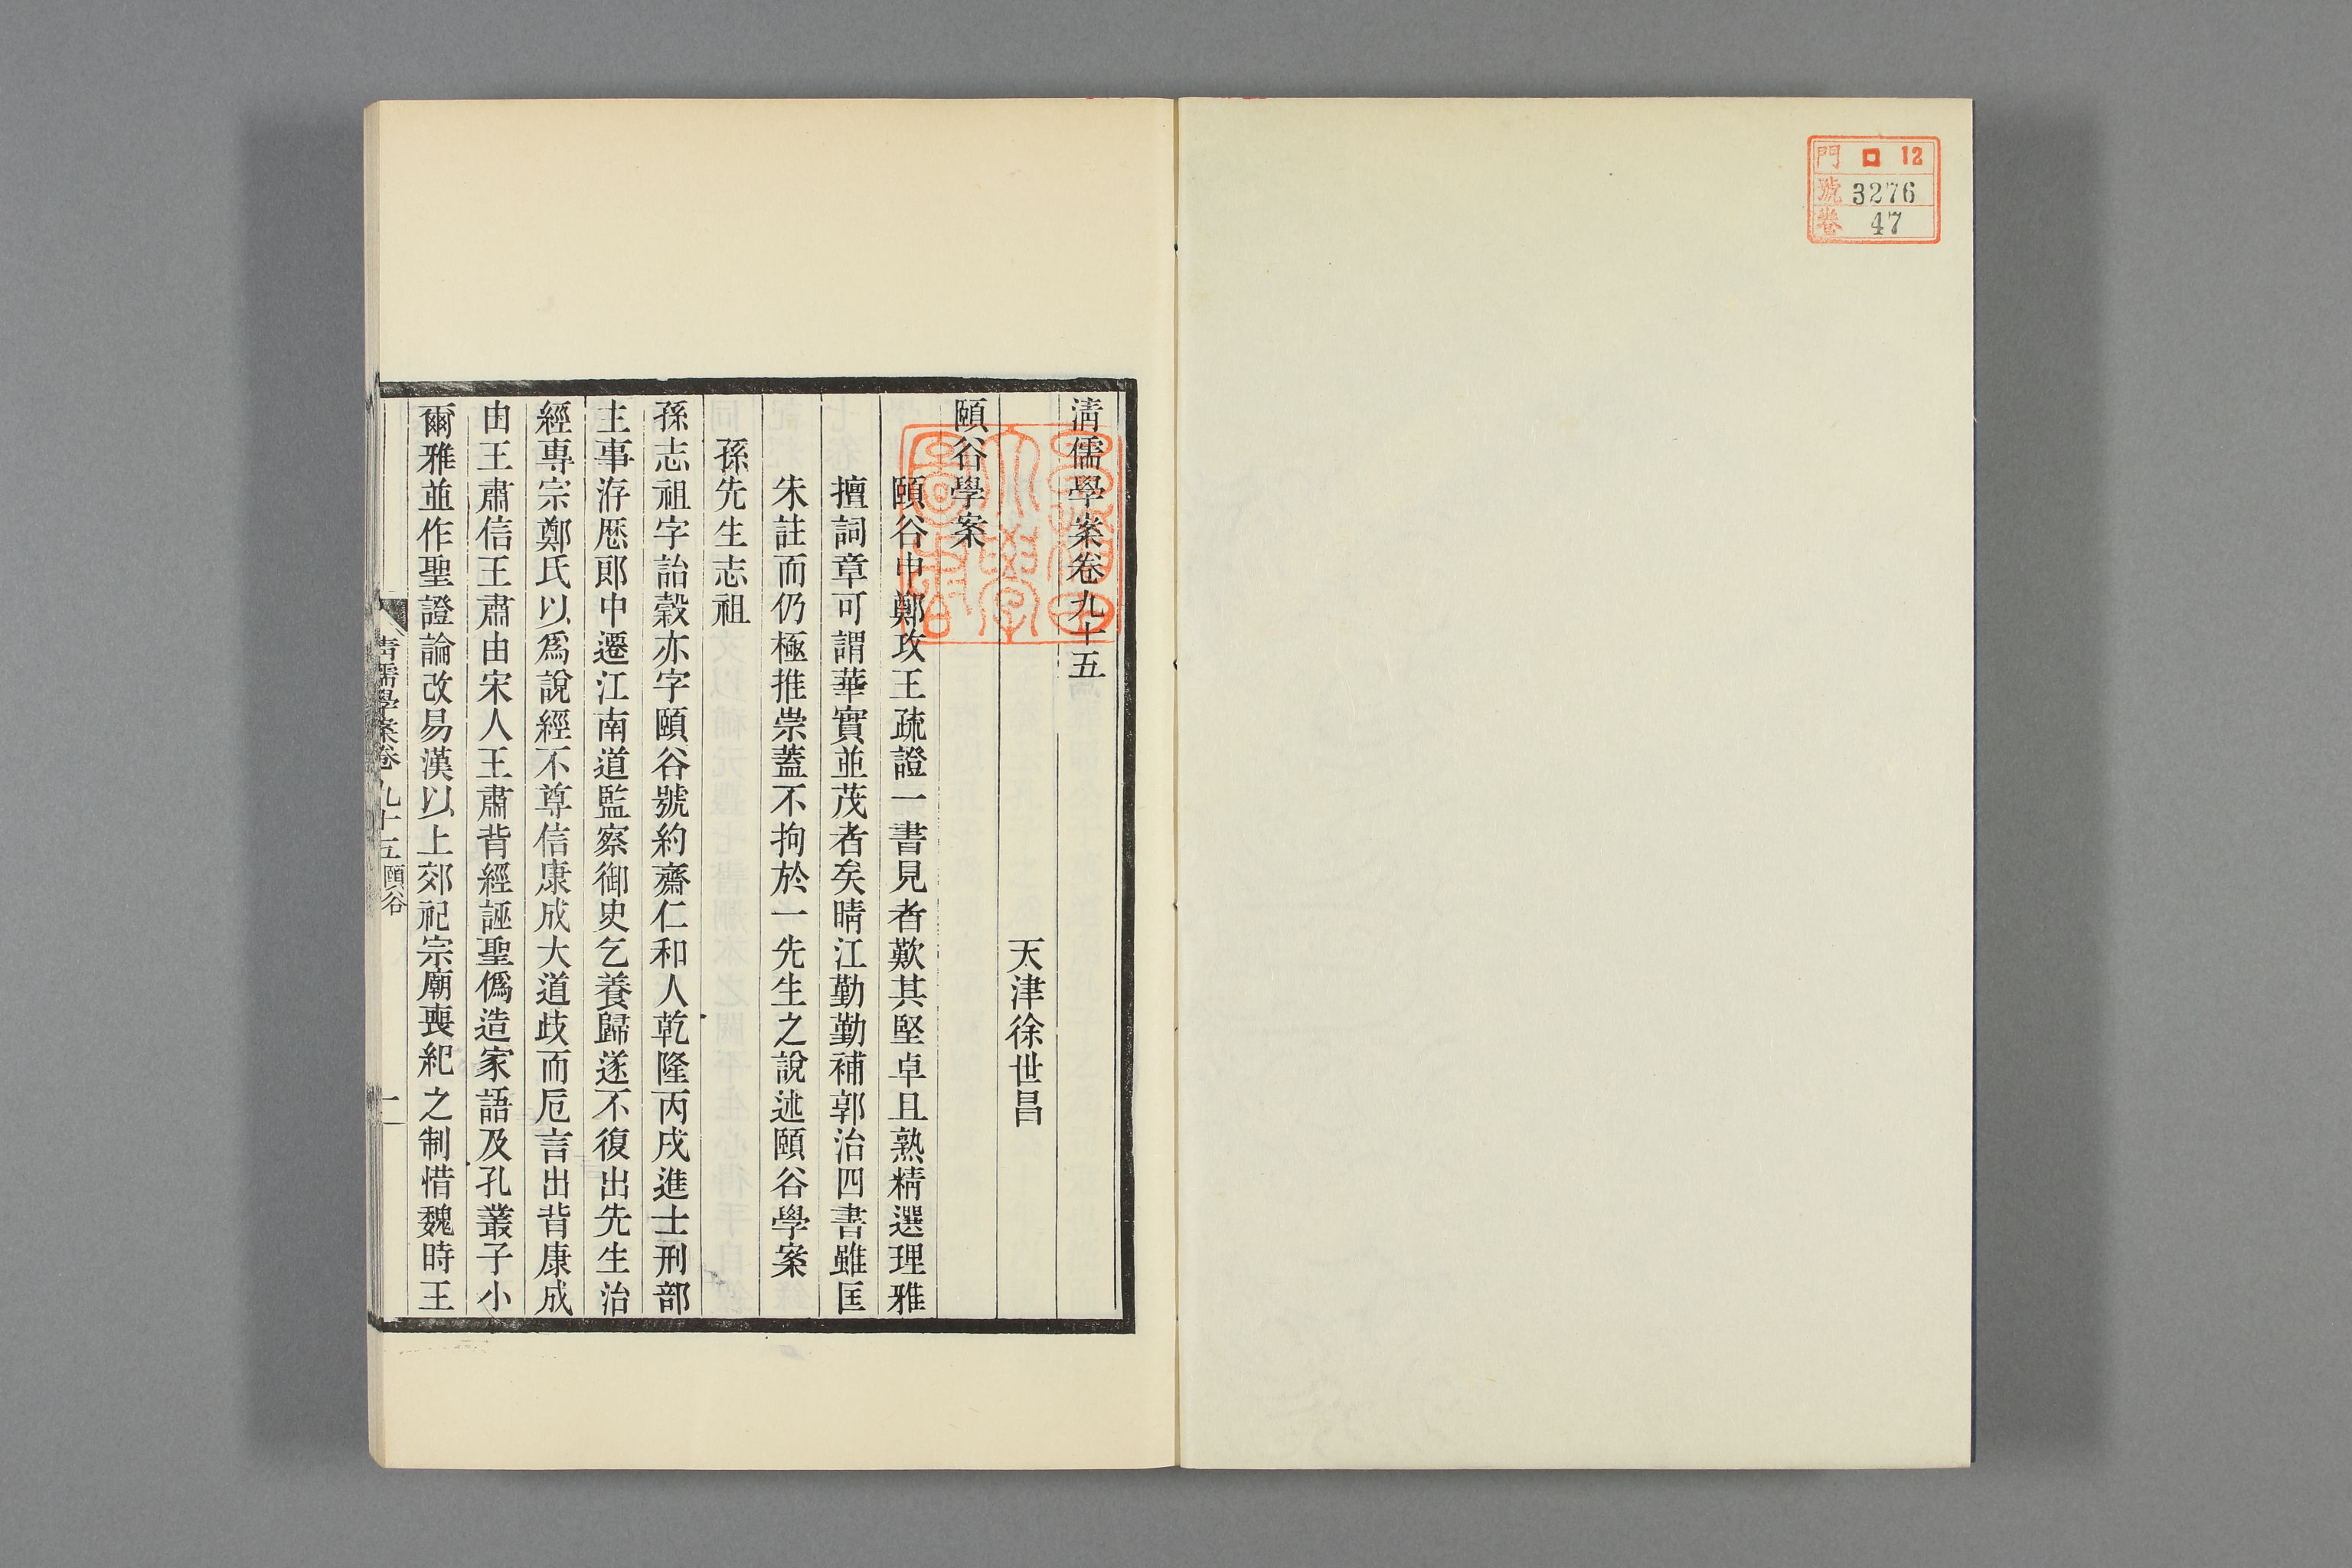 門 ロ 12
號 3276
卷 47
清儒學案卷九十五
天津徐世昌
頤谷學案
頤谷申鄭攻王疏證一書見者歎其堅卓且熟精選理雅
擅詞章可謂華實並茂者矣晴江勤勤補郭治四書雖匡
朱註而仍極推崇蓋不拘於一先生之說述頤谷學案
孫先生志祖
孫志祖字詒穀亦字頤谷號約齋仁和人乾隆丙戌進士刑部
主事洊歷郎中遷江南道監察御史乞養歸遂不復出先生治
經專宗鄭氏以爲說經不尊信康成大道歧而卮言出背康成
由王肅信王肅由宋人王肅背經誣聖僞造家語及孔叢子小
爾雅並作聖證論改易漢以上郊祀宗廟喪紀之制惜魏時王
清儒學案卷九十五頤谷
一